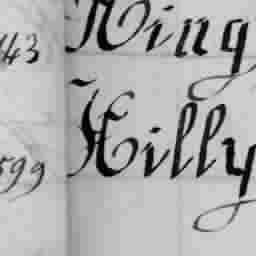 43 King
599 Hilly